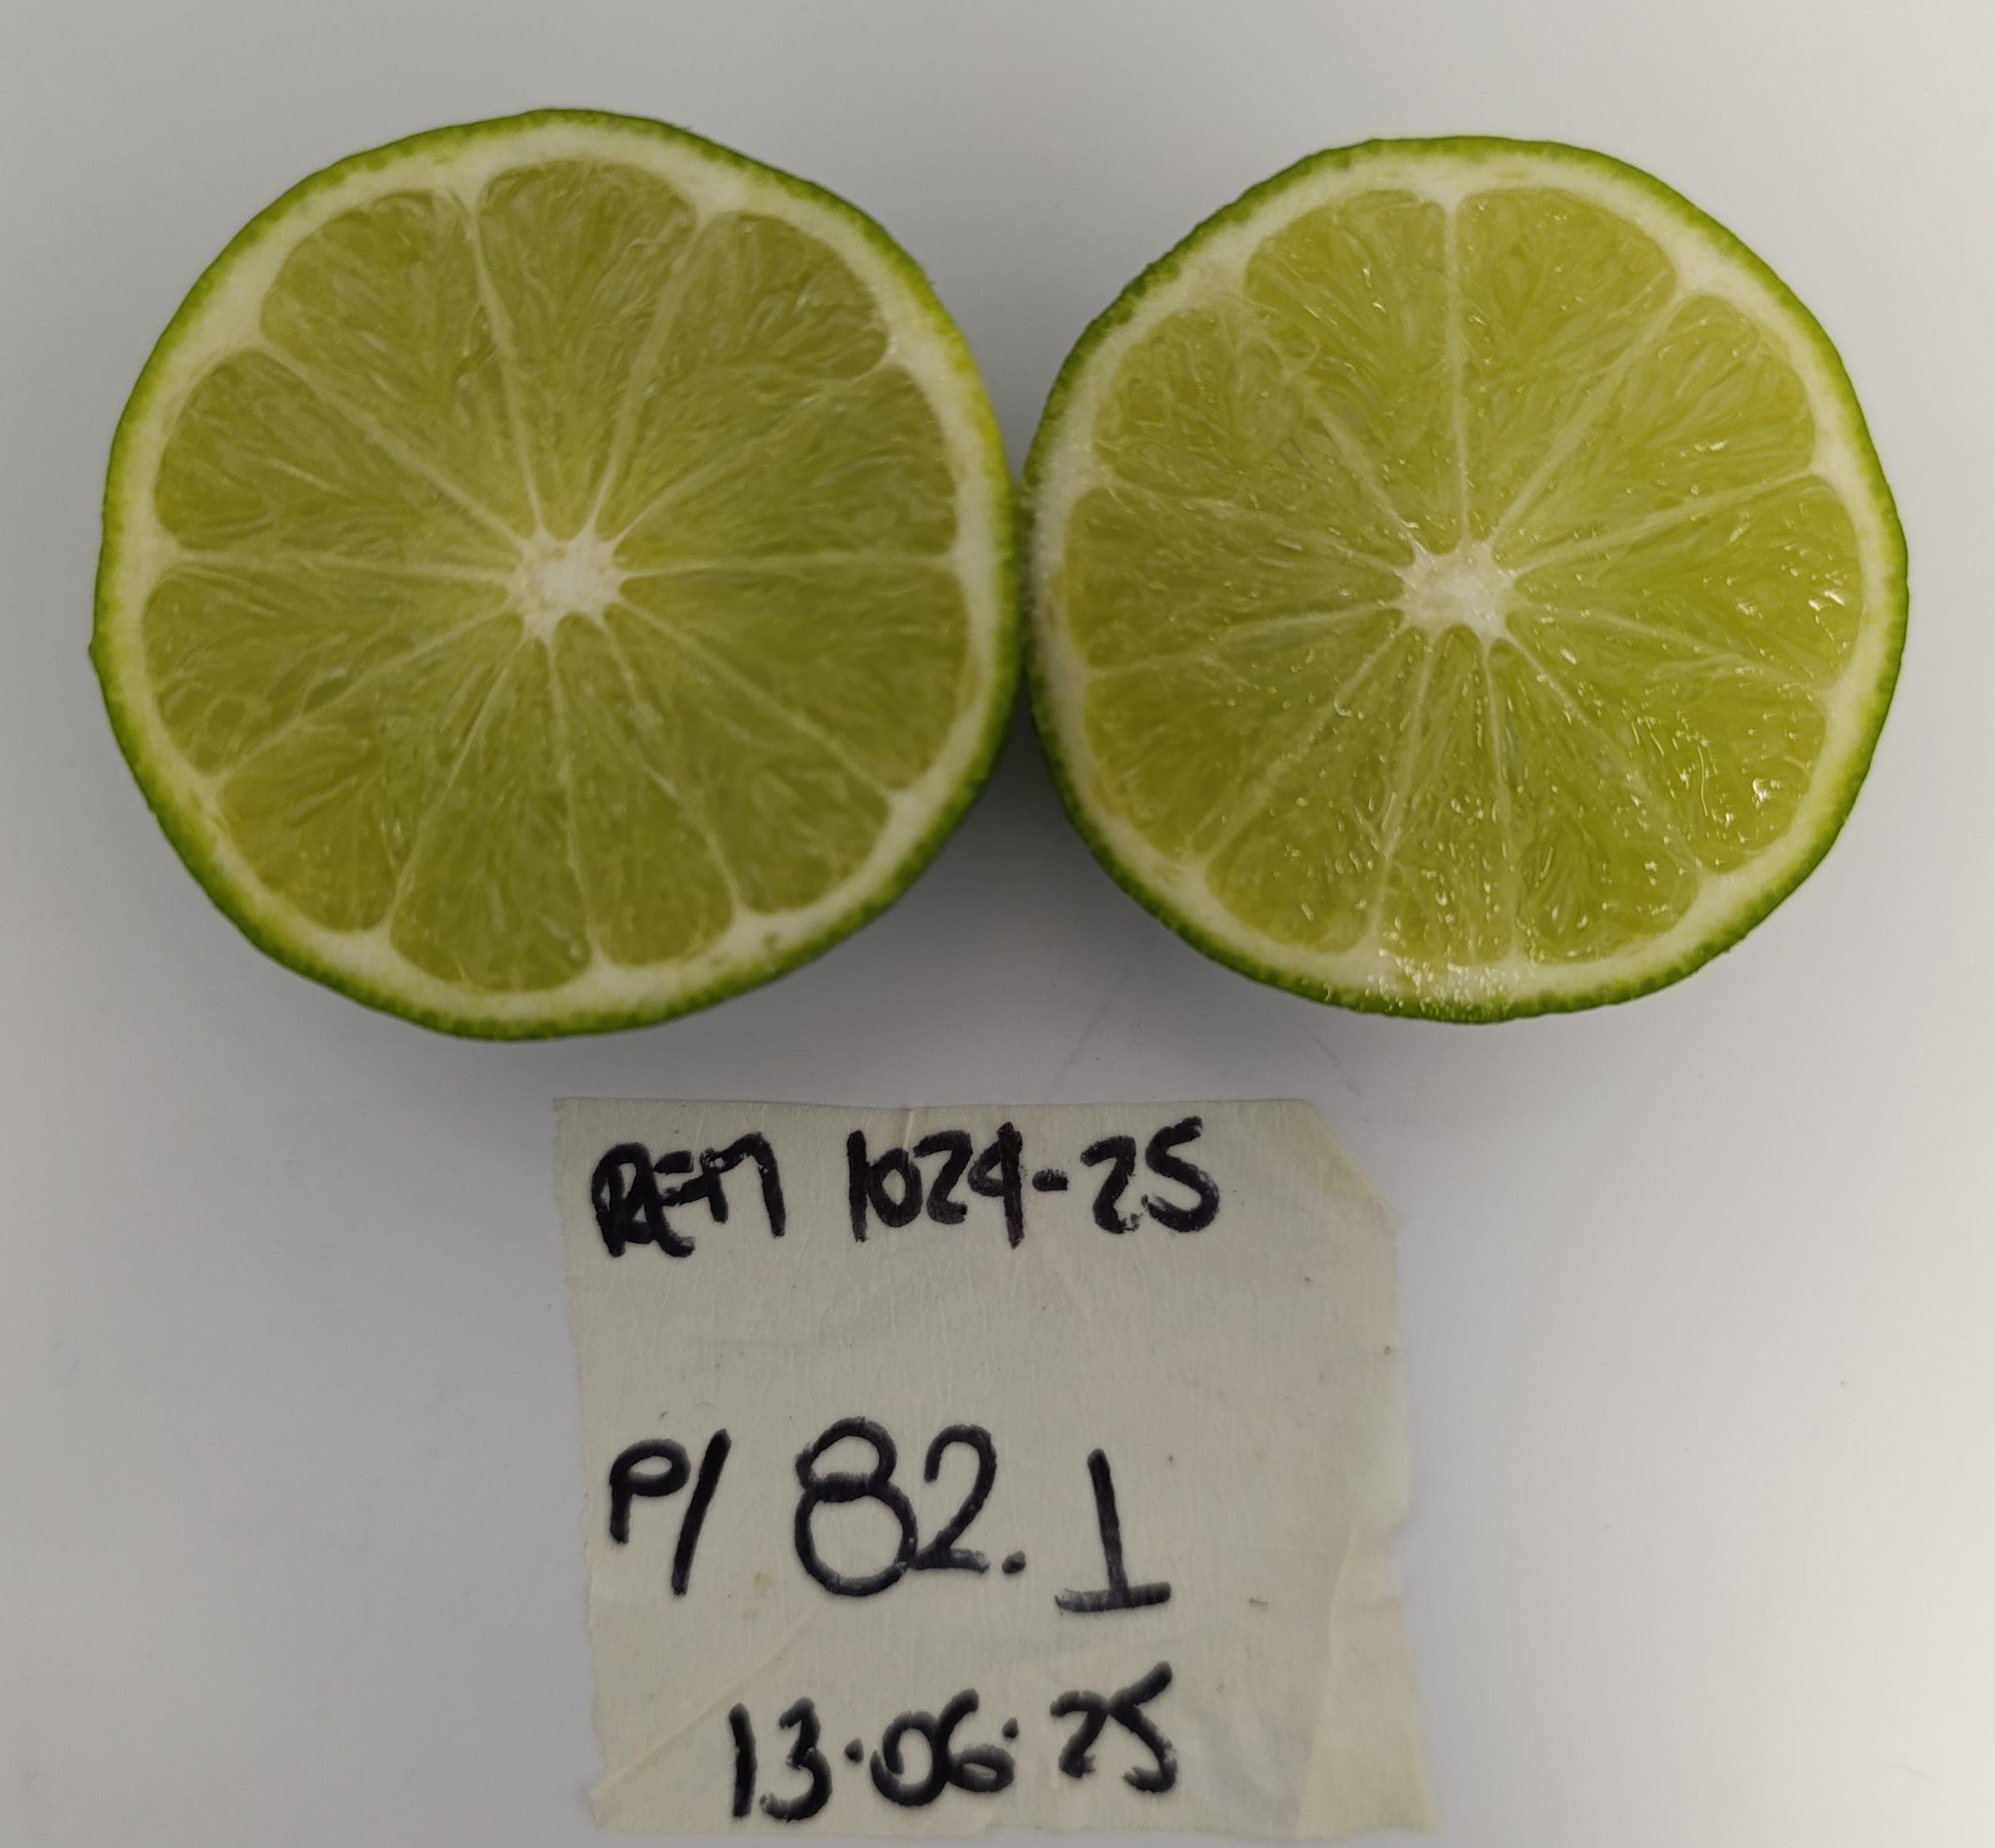 REM 1024-25
P/ 82.1
13.06.25